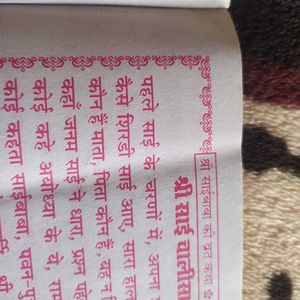 श्री साईंबाबा की व्रत कथा
श्री साईं चालीसा
पहले साईं के चरणों में, अपना
कैसे शिरडी साईं आए, सारा हाल
कौन हैं माता, पिता कौन हैं, यह न
कहाँ जनम साईं ने धारा, प्रश्न पहेली
कोई कहे अयोध्या के ये,
कोई कहता साईंबाबा, पवन-पुत्र